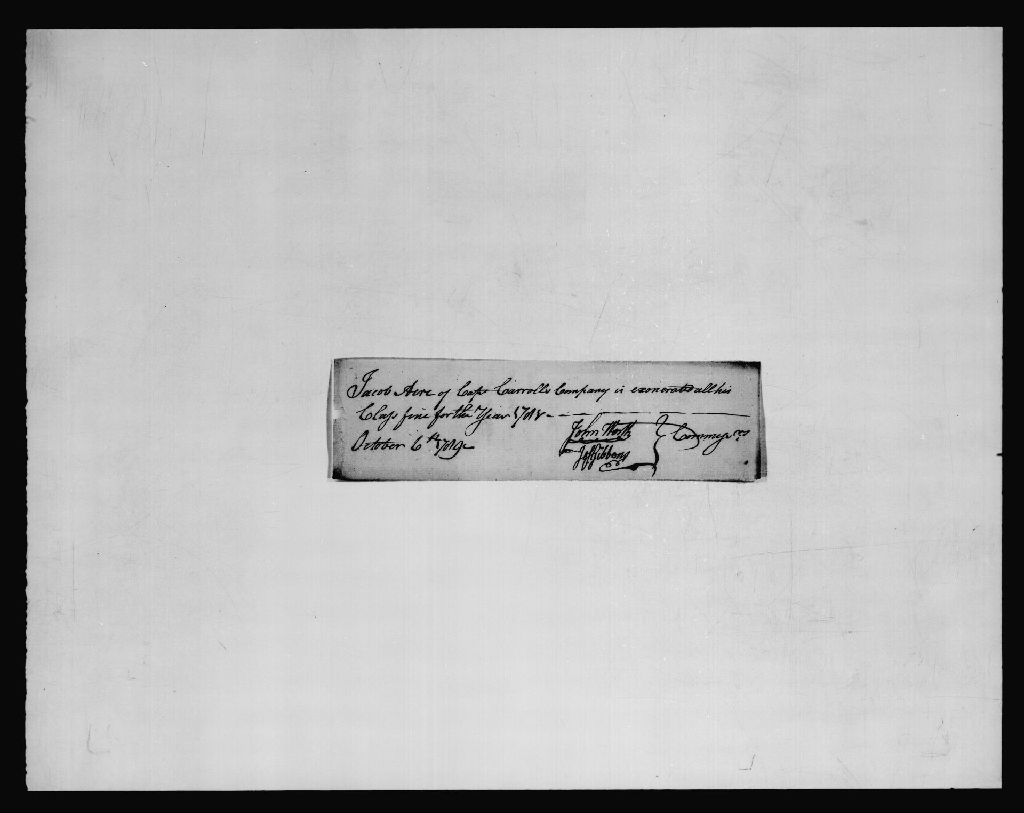 Jacob Acre of Capt Carrolls Company is exonerated all his
Class fine for the Year 1781
October 6th 1789
John Worth
Jas Gibbons
Commissrs